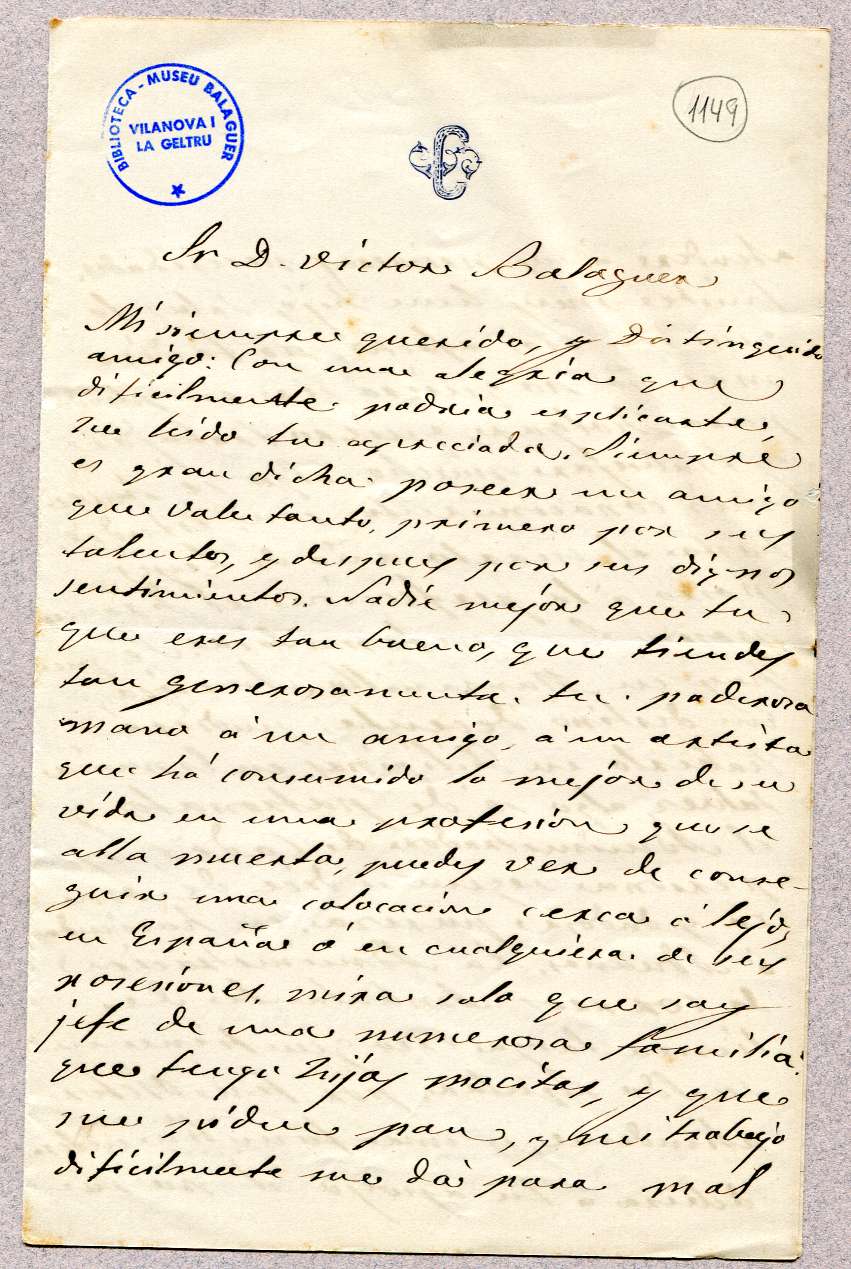 BIBLIOTECA - MUSEU BALAGUER
VILANOVA I
LA GELTRU
1149
Sr D. Victor Balaguer
Mi siempre querido, y Distinguido
amigo: Con una alegria que
dificilmente podria esplicarte,
he leido tu apreciada. Siempre
es gran dicha poseer un amigo
que vale tanto, primero por sus
talentos, y despues por sus dignos
sentimientos. Nadie mejor que tu
que eres tan bueno, que tiendes
tan generosamente tu poderosa
mano á un amigo, á un artista
que há consumido lo mejor de su
vida en una profesion que se
alla muerta, puedes ver de conse-
guir una colocacion cerca ó lejos,
en España ó en cualquiera de sus
posesiones. mira solo que soy
jefe de una numerosa familia
que tengo hijas mocitas, y que
me piden pan, y mi trabajo
dificilmente me dá para mal